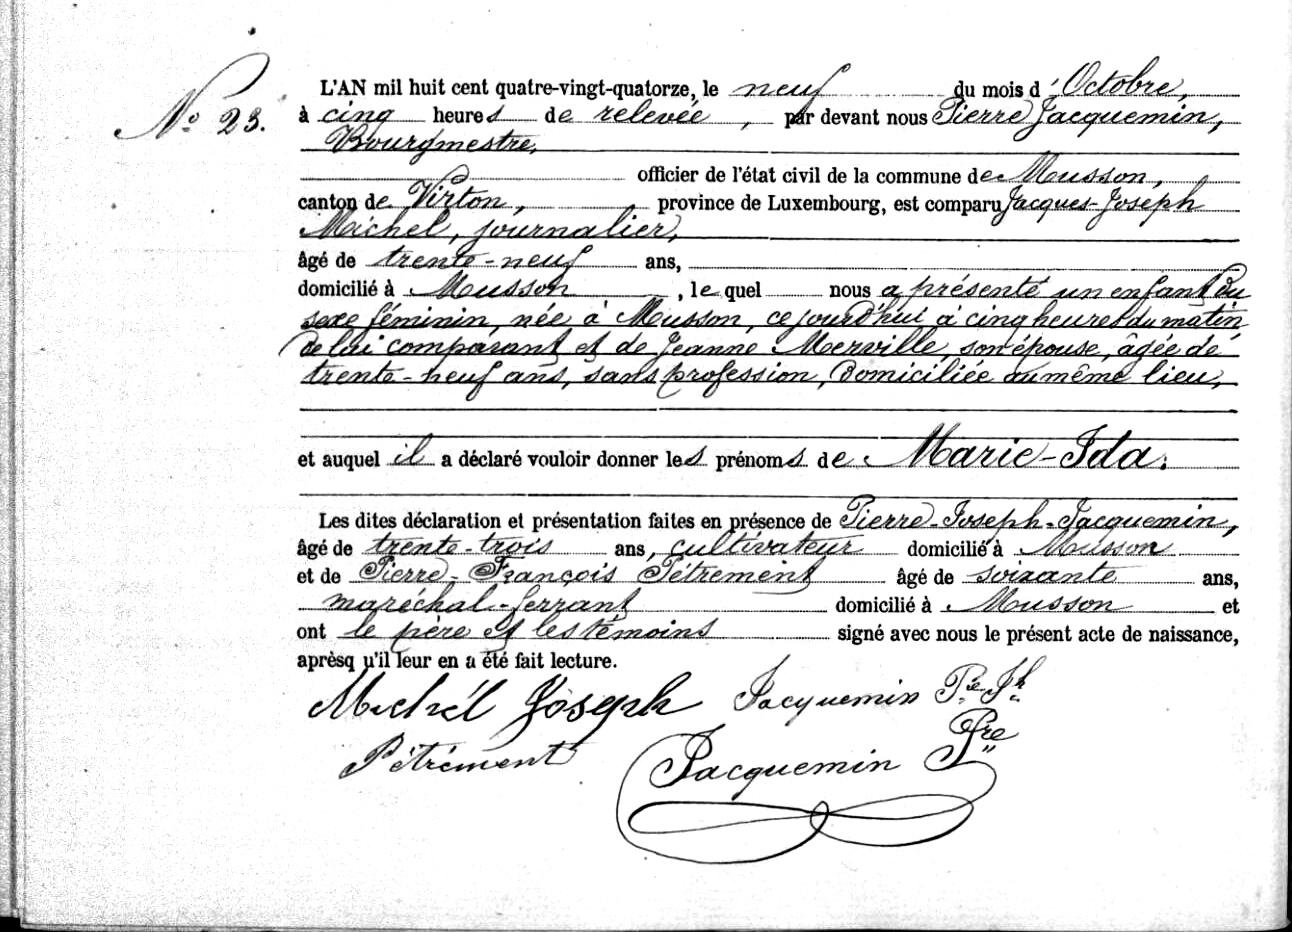 No 23.
L'AN mil huit cent quatre-vingt-quatorze, le neuf du mois d'Octobre,
à cinq heures de relevée, par devant nous Pierre Jacquemin,
Bourgmestre,
officier de l'état civil de la commune de Musson,
canton de Virton, province de Luxembourg, est comparu Jacques-Joseph
Michel, journalier,
âgé de trente-neuf ans,
domicilié à Musson, lequel nous a présenté un enfant du
sexe féminin, née à Musson, ce jourd'hui à cinq heures du matin,
de lui comparant et de Jeanne Merville, son épouse, âgée de
trente-neuf ans, sans profession, domiciliée au même lieu,
et auquel il a déclaré vouloir donner les prénoms de Marie-Ida.
Les dites déclaration et présentation faites en présence de Pierre-Joseph-Jacquemin,
âgé de trente-trois ans, cultivateur domicilié à Musson
et de Pierre-François Pétrement âgé de soixante ans,
maréchal-ferrant domicilié à Musson et
ont le père et les témoins signé avec nous le présent acte de naissance,
aprèsq u'il leur en a été fait lecture.
Michél Joseph Jacquemin Pre Jh
Pétrément Jacquemin Pre